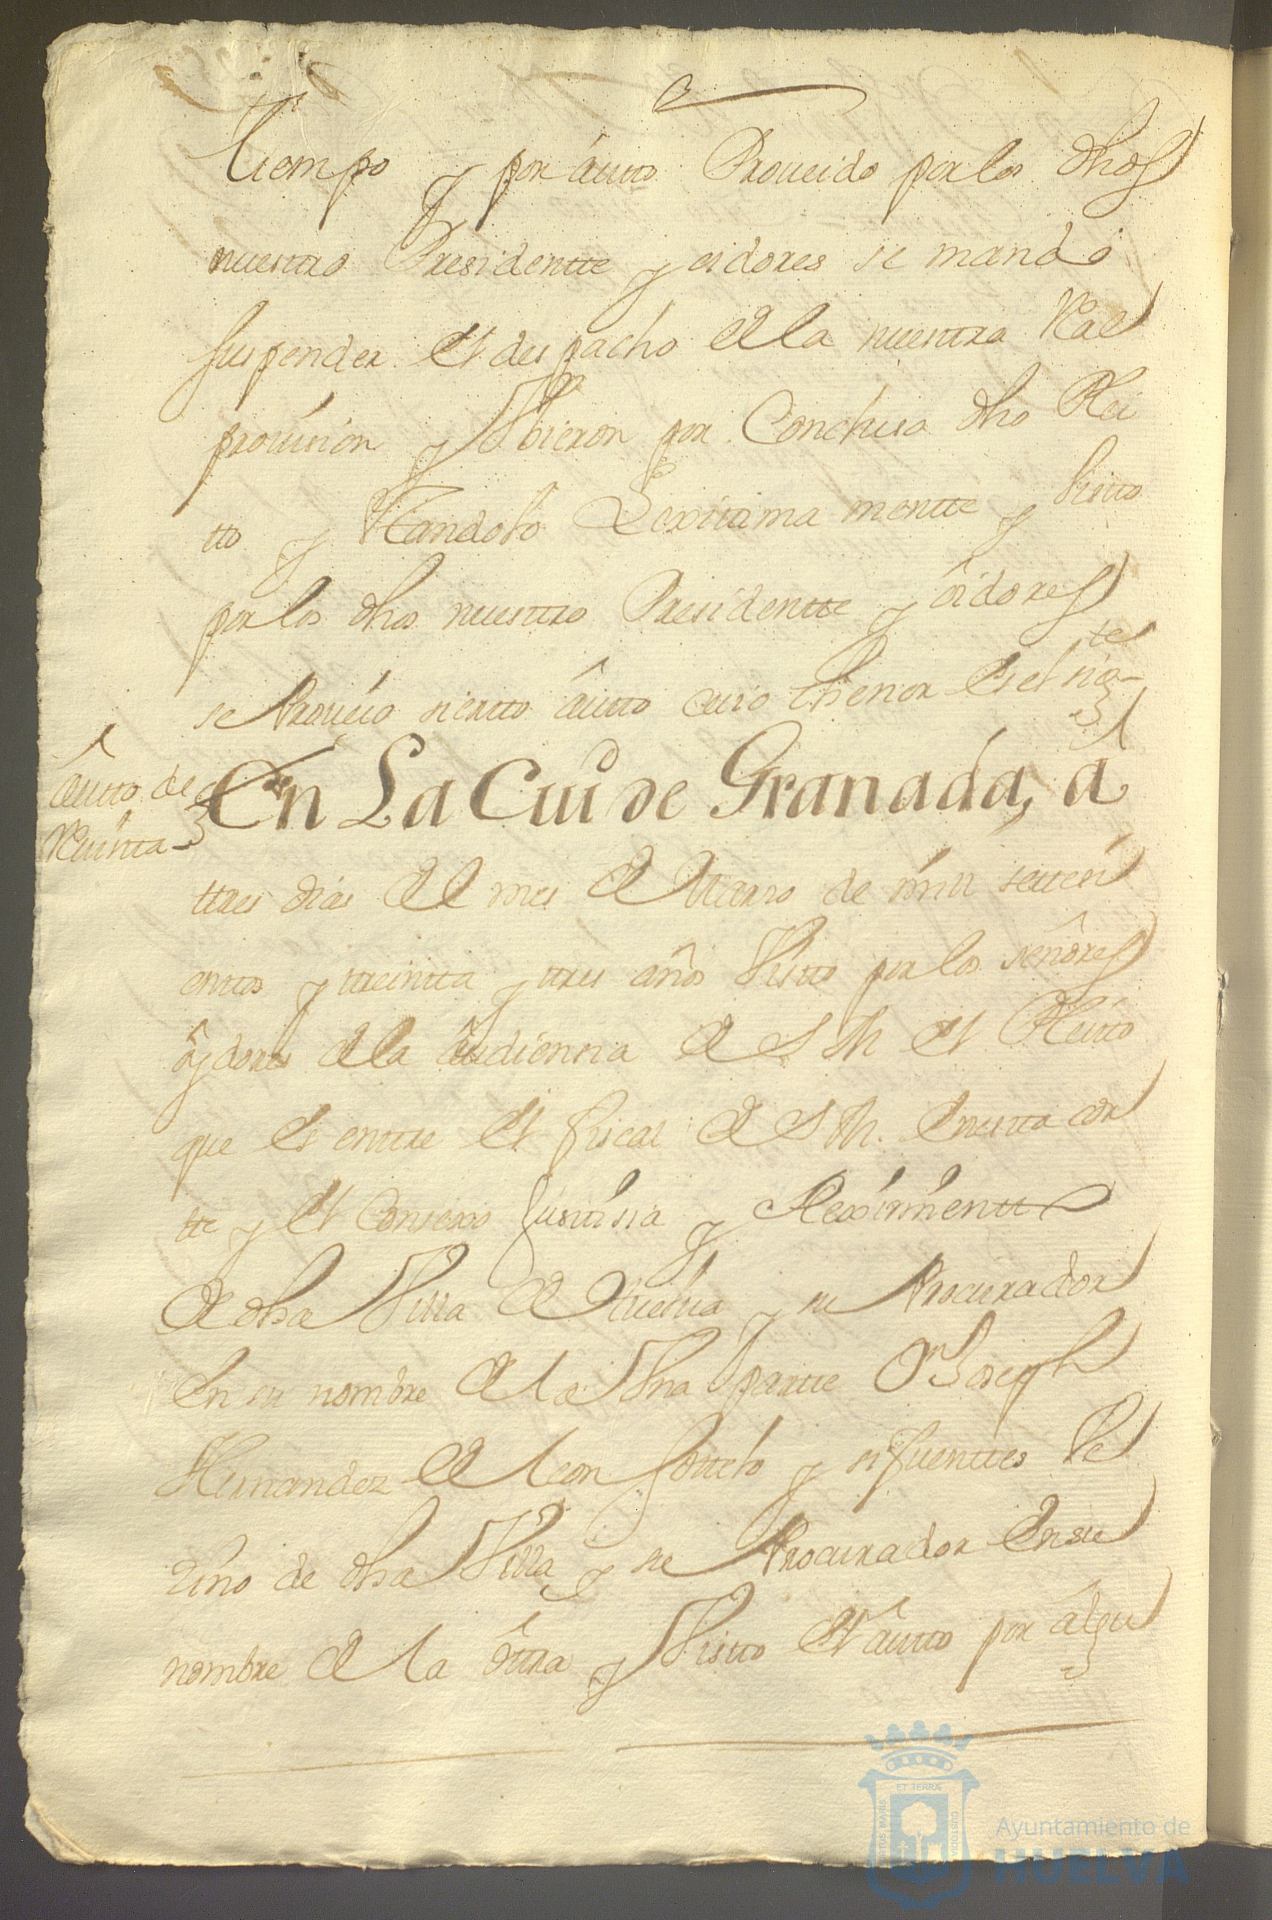 tiempo y por âutto Proueido por los dhos
nuestro Presidentte y oidores se mandó
suspender el despacho de la nuestra Real
prouision y Vbieron por Conclusa dho Plei
tto y estandolo Lexitima mentte y bistto
por los dhos nuesttro Presidentte y ôidores
se Proueio siertto âutto cuio thenor es el sigte
âutto de
Reuista
En La Ciud de Granada, â
ttres dias del mes de Marzo de mill setteci
enttos y ttreintta y ttres años Vistto por los señôres
ôydores de la âudiencia de S M el Pleitto
que es enttre el fiscal de S M. en estta cor
tte y el Consexo Justtisia y Reximientto
de dha Villa de Huelua y su Procurador
en su nombre de la Vna partte Dn Joseph
Hernandez de leon sottelo y sifuenttes Ve
zino de dha Villa y su Procurador en su
nombre de la ôttra y Vistto el âutto por âlgu
ET TERRÆ
PORTUS MARIS
CUSTODIA
Ayuntamiento de
HUELVA